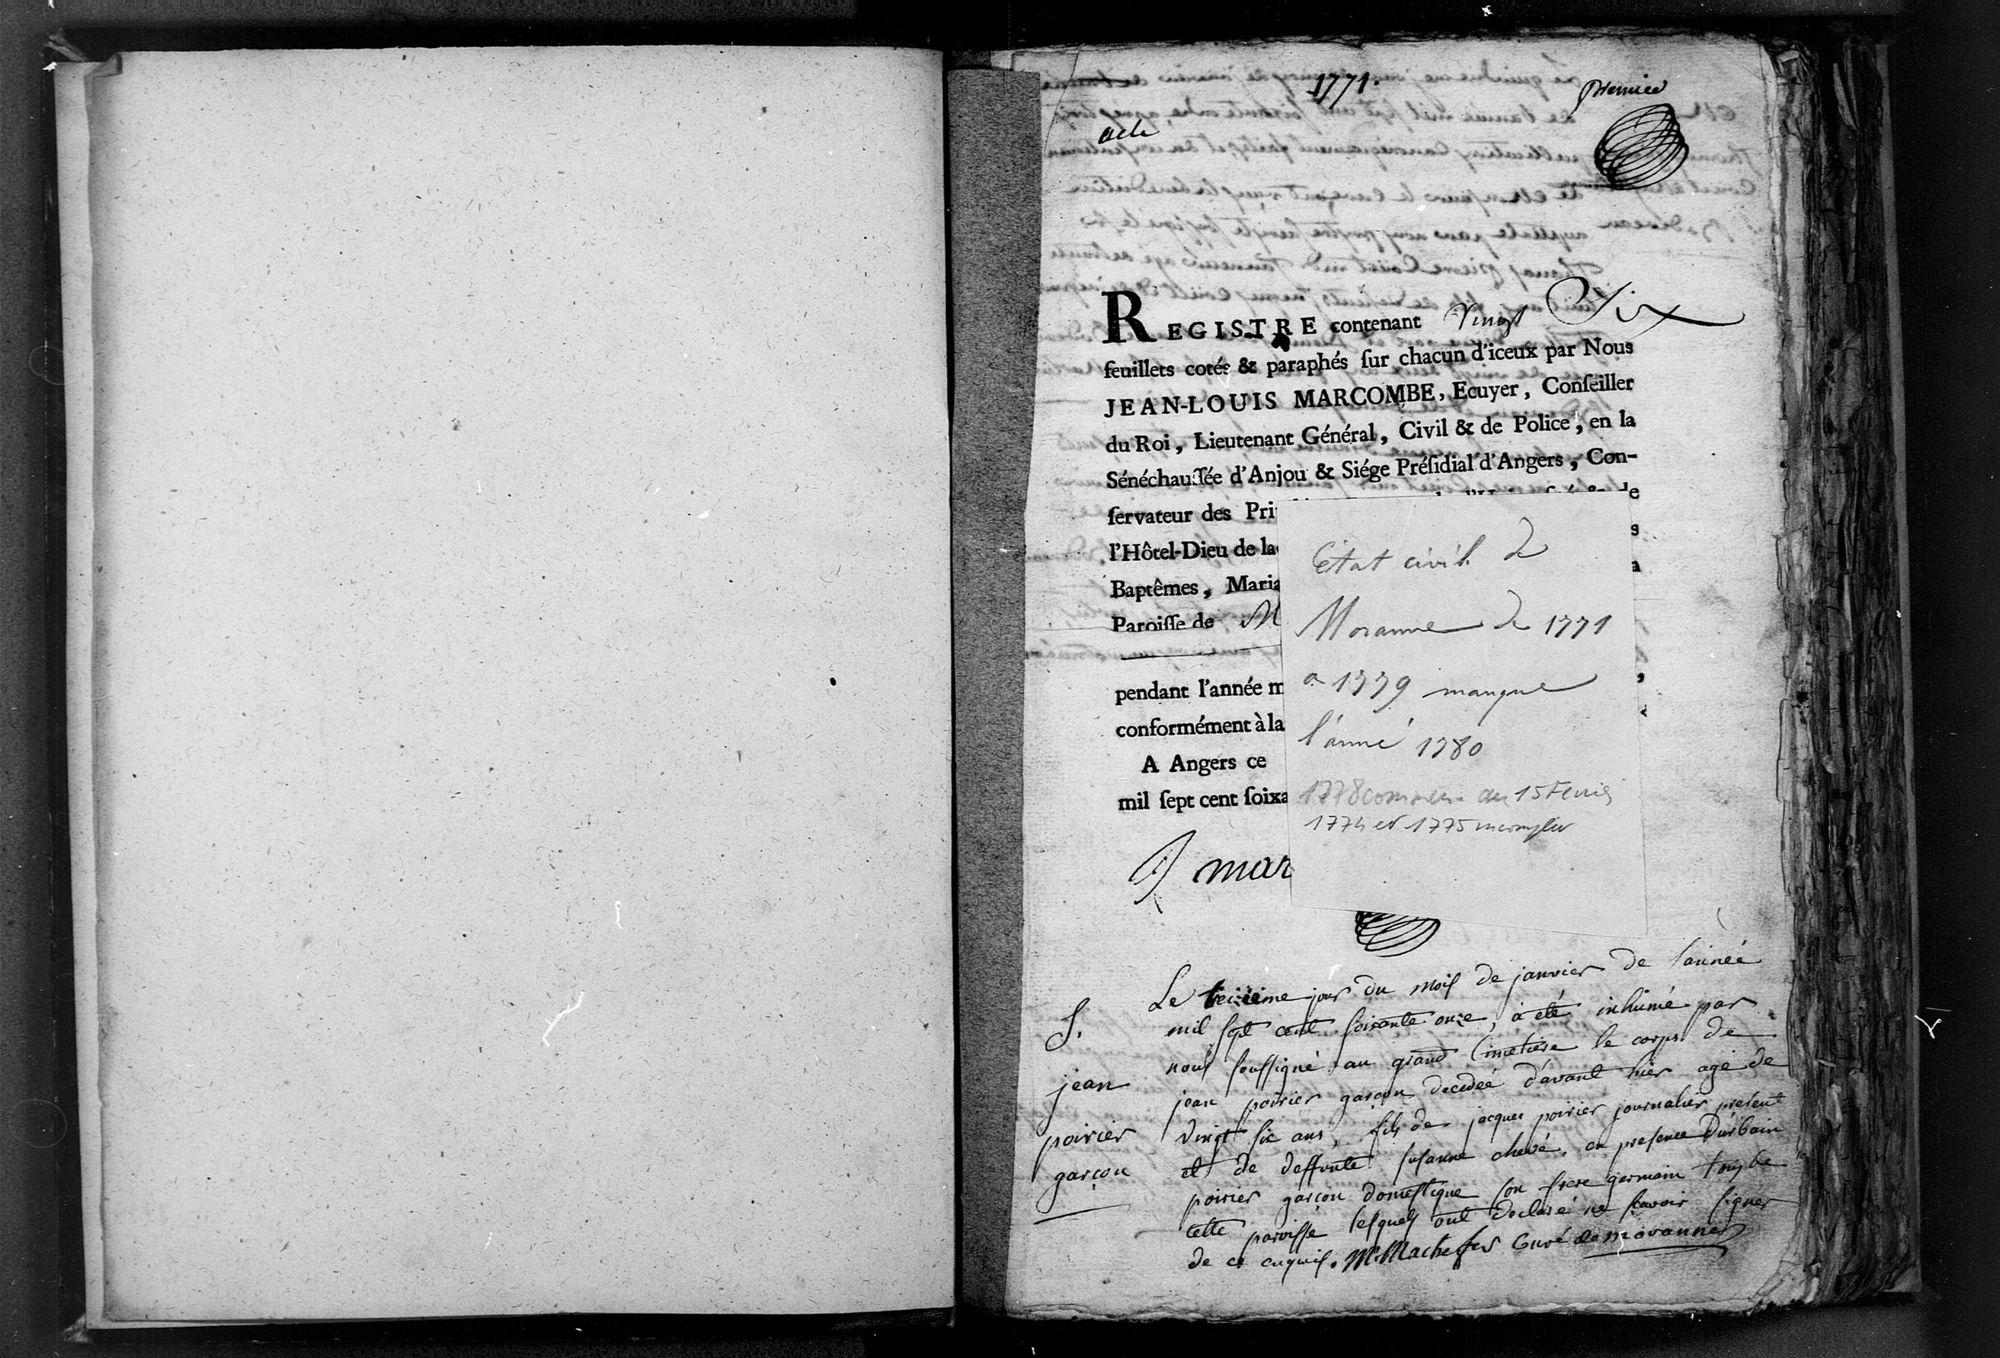 1771.
premier
acte
REGISTRE contenant Vingt Six
feuillets cotés & paraphés sur chacun d'iceux par Nous
JEAN-LOUIS MARCOMBE, Ecuyer, Conseiller
du Roi, Lieutenant Général, Civil & de Police, en la
Sénéchaussée d'Anjou & Siége Présidial d'Angers, Con-
servateur des Pri
l'Hôtel-Dieu de la
Baptêmes, Maria
Paroisse de M
pendant l'année m
conformément à la
A Angers ce
mil sept cent soixa
mar
Etat civil de
Moranne de 1771
a 1779 manque
l'année 1780
1778 commence au 15 Fevrier
1774 et 1775 incomplet
S.
jean
poirier
garçon
Le treizieme jour du mois de janvier de l'année
mil sept cent soixante onze, a été inhumé par
nous soussigné au grand Cimetiere le corps de
jean poirier garçon decedée d'avant hier agé de
vingt six ans, fils de jacques poirier journalier present
et de deffunte susanne chevé, en presence d'urbain
poirier garçon domestique son frere germain tous de
cette paroisse lesquels ont declaré ne scavoir signer
de ce enquis. M. Machefer Curé de moranne